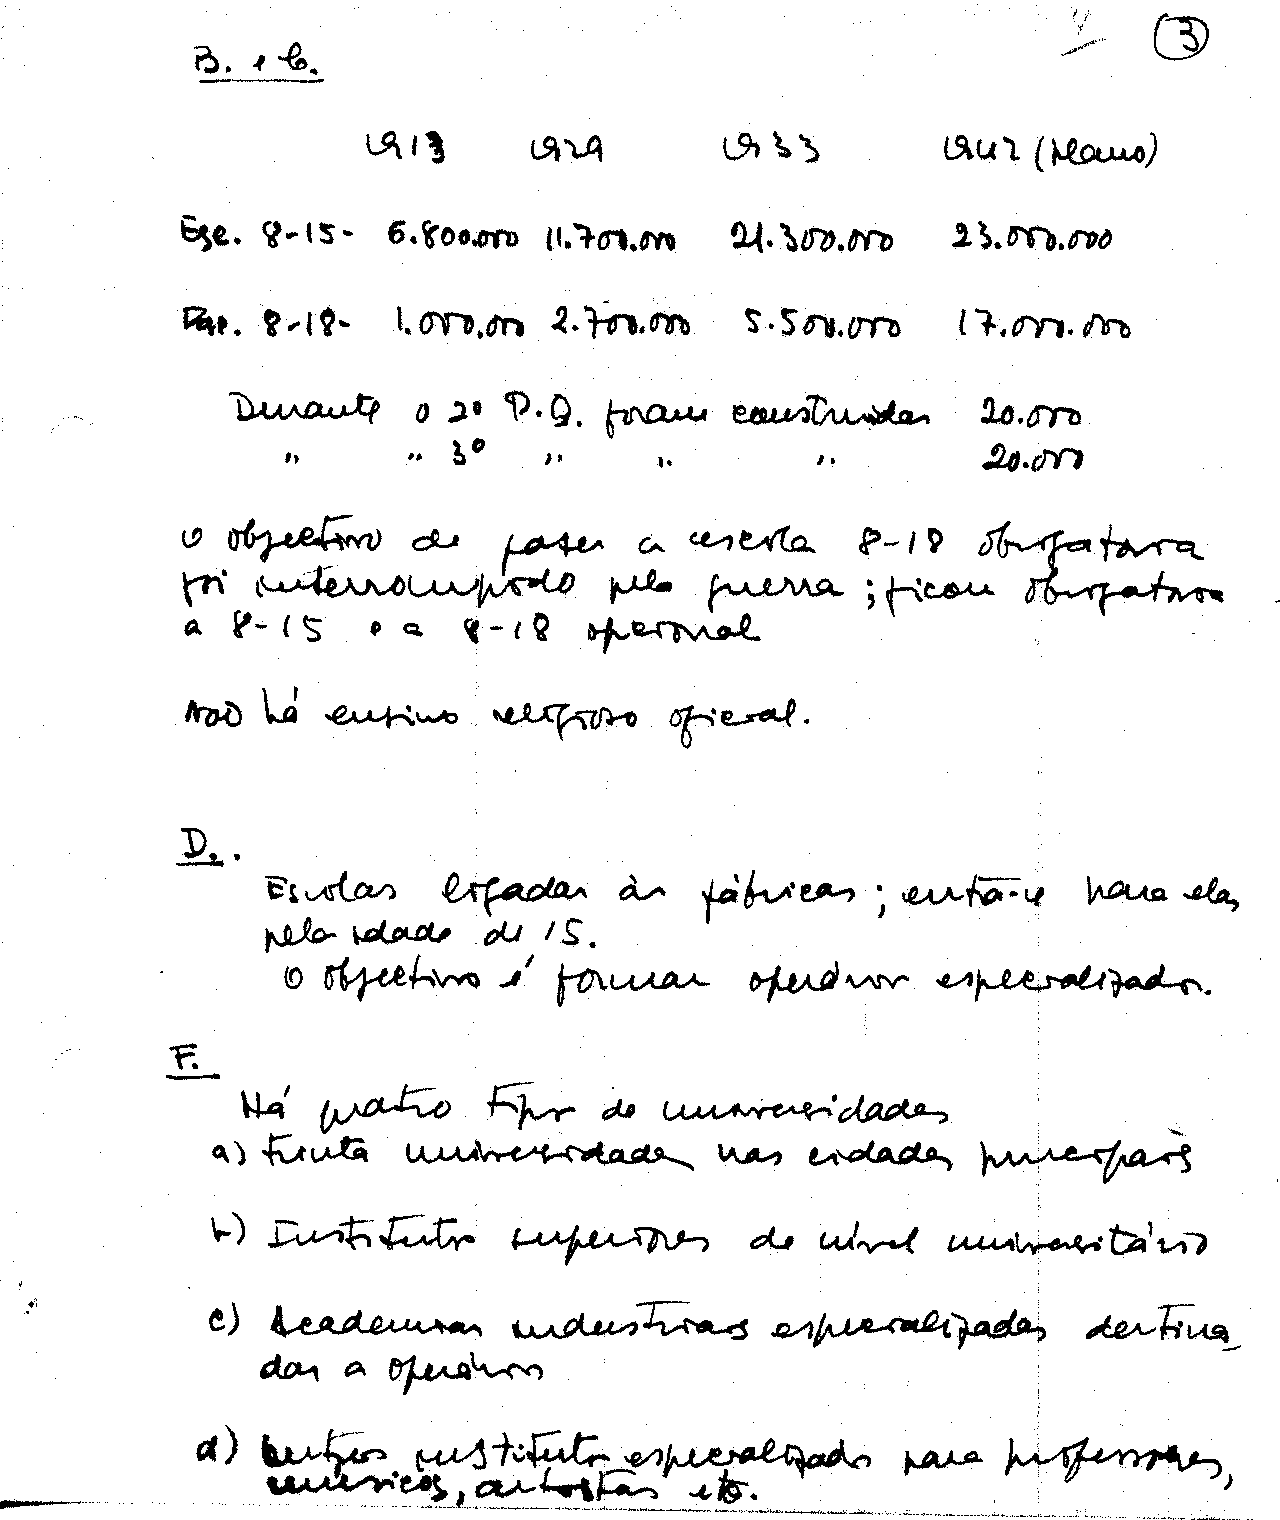 3
B. e C.
1913 1929 1933 1942 (Plano)
Esc. 8-15- 6.800.000 11.700.000 21.300.000 23.000.000
8-18- 1.000.000 2.700.000 5.500.000 17.000.000
Durante o 2º P.Q. foram construidas 20.000
" " 3º " " " 20.000
O objectivo de fazer a escola 8-18 obrigatoria
foi interrompido pela guerra; ficou obrigatoria
a 8-15 e a 8-18 opcional
Não há ensino religioso oficial.
D.
Escolas ligadas às fábricas; entra-se para elas
pela idade de 15.
O objectivo é formar operários especializados.
F.
Há quatro tipos de universidades
a) trinta universidades nas cidades principais
b) Institutos superiores de nível universitário
c) Academias industriais especializadas destina_
das a operários
d) outros institutos especializados para professores,
músicos, artistas etc.